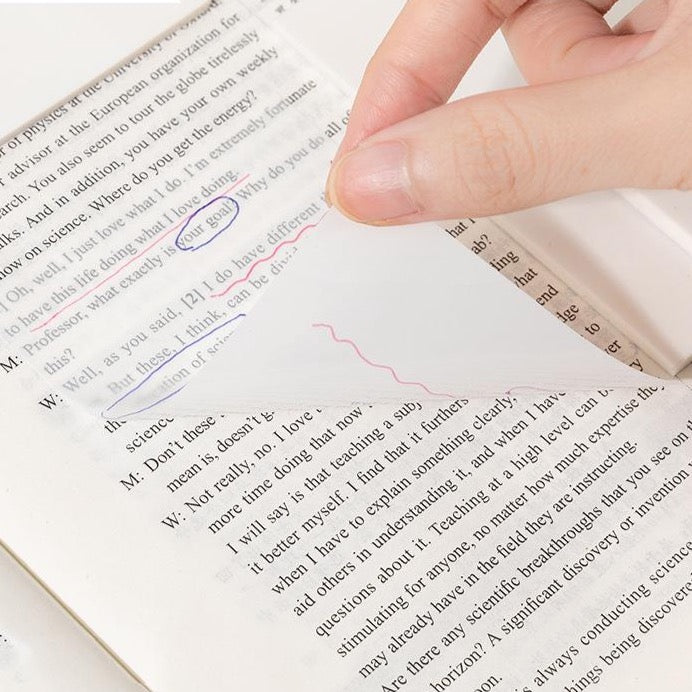 of physics at the University of
advisor at the European organization for
You also seem to tour the globe tirelessly
And in addition, you have your own weekly
on science. Where do you get the energy?
Oh, well, I just love what I do. I'm extremely fortunate
to have this life doing what I love doing.
M: Professor, what exactly is your goal? Why do you do all of
this?
W: Well, as you said, [2] I do have different
But these, I think, can be
of
science
M: Don't these
mean is, doesn't
W: Not really, no. I love
more time doing that now
I will say is that teaching a
it better myself. I find that it furthers
when I have to explain something clearly
aid others in understanding it, and when I have
questions about it. Teaching at a high level can be
stimulating for anyone, no matter how much expertise the
may already have in the field they are instructing.
Are there any scientific breakthroughs that you see on
horizon? A significant discovery or invention
always conducting science
things being discovere